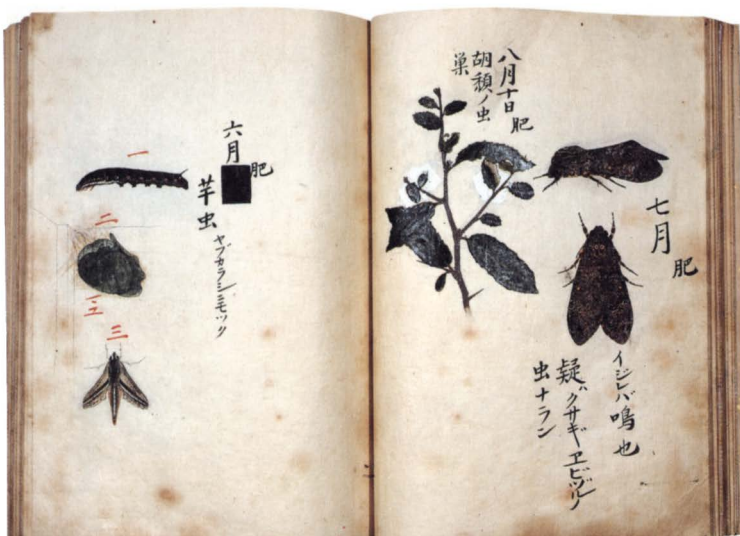 八月十日 肥
胡頽ノ虫
巣
七月 肥
イジレバ鳴也
疑ハクサギヱビヅル
虫ナラン
六月 肥
芋虫 ヤブカラシニモツク
一
二
二
三